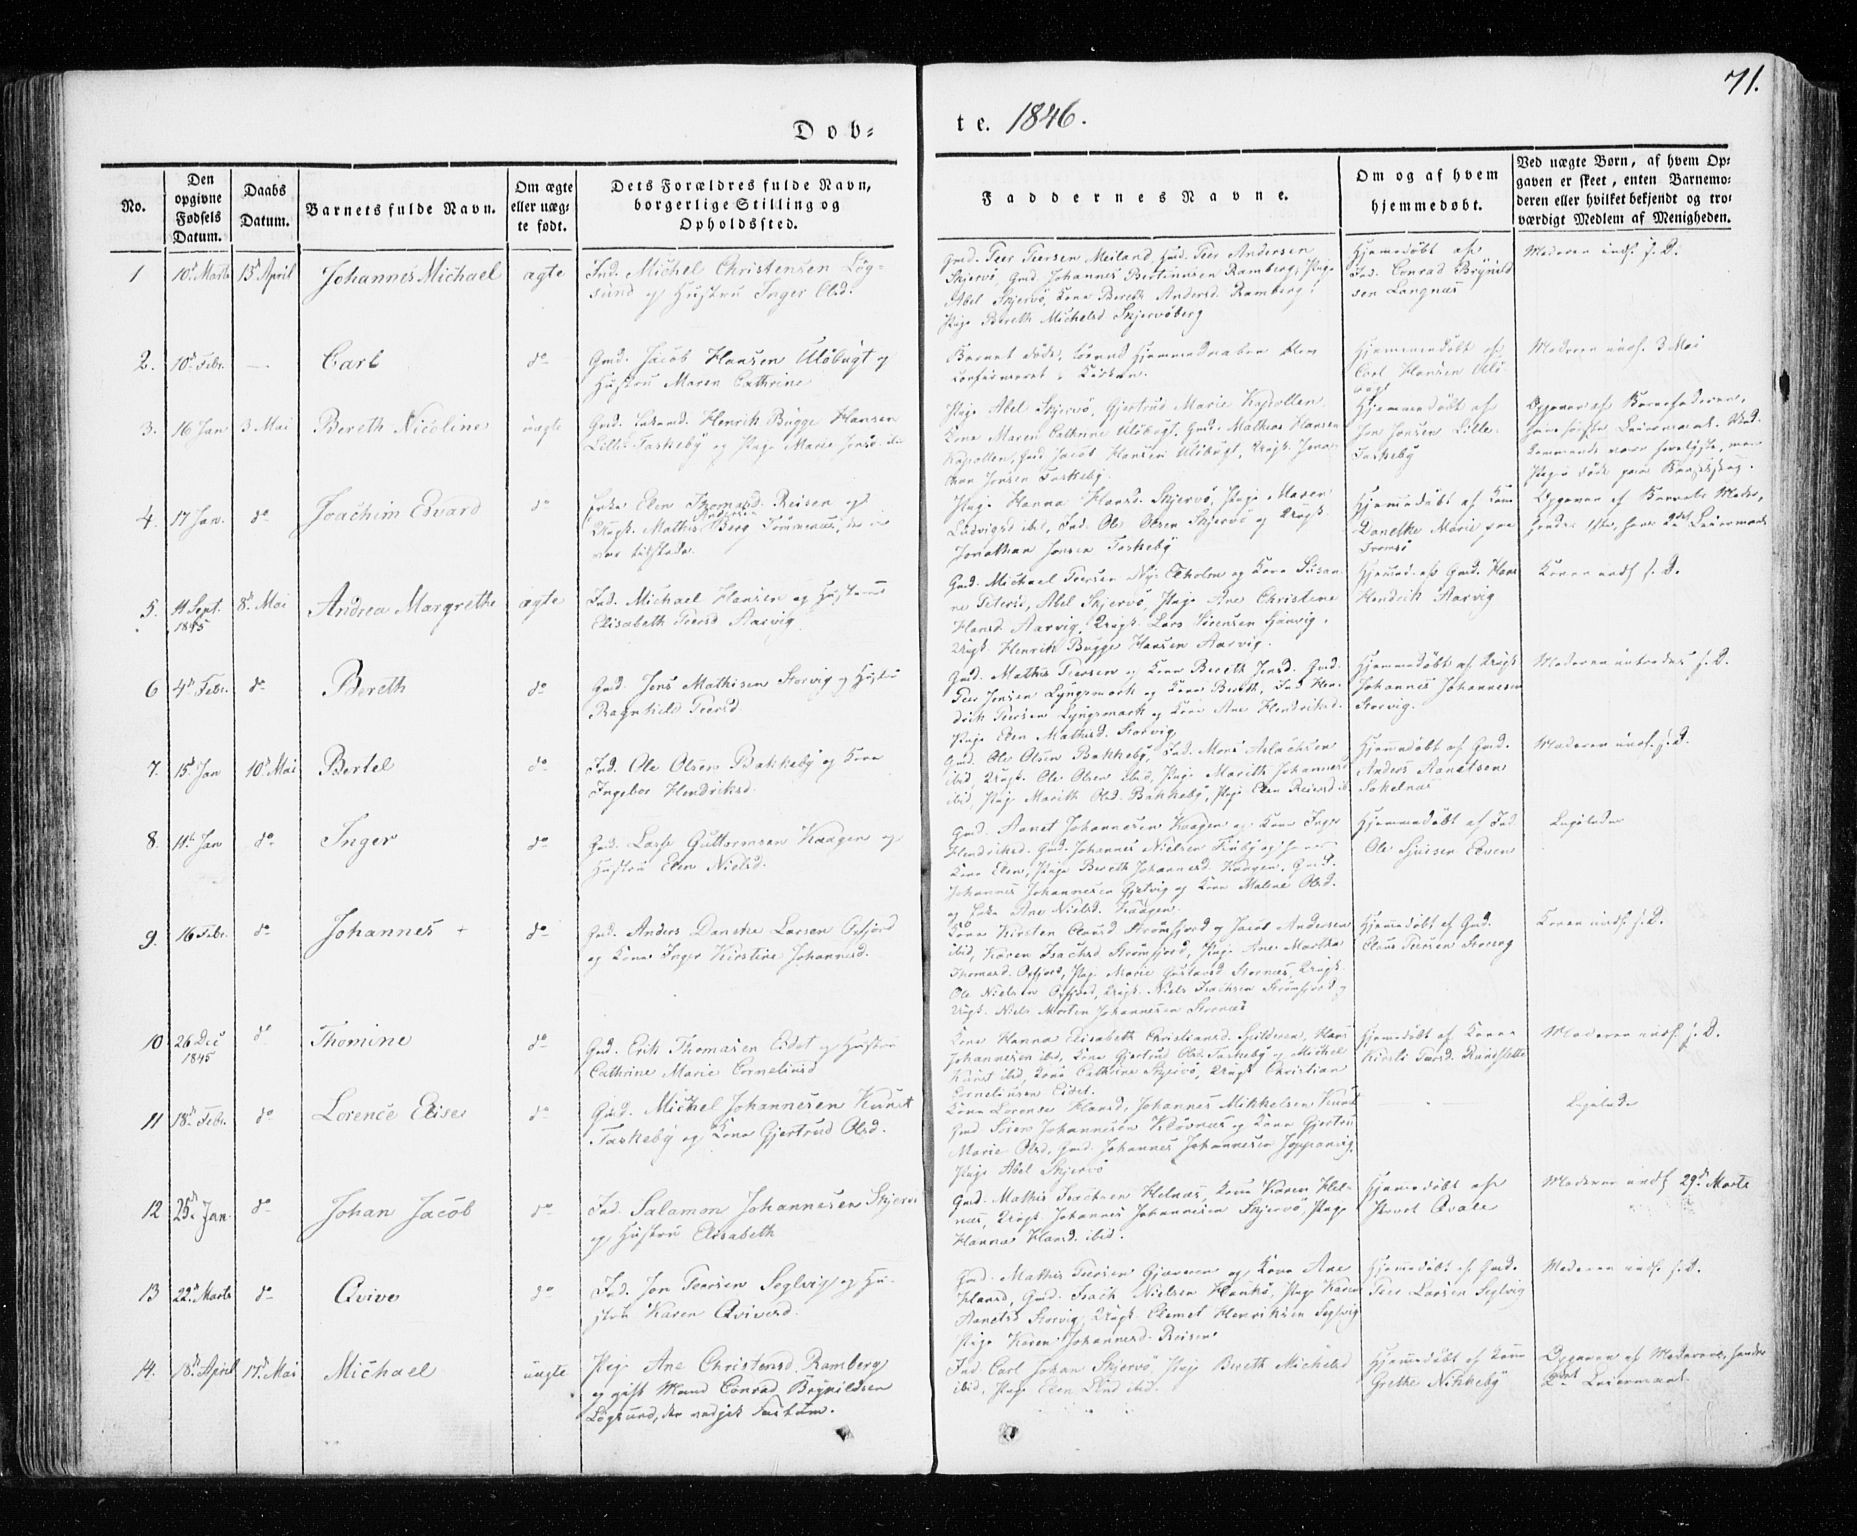 71.
Døb-
te. 1846.
No.
Den opgivne Fødsels Datum.
Daabs Datum.
Barnets fulde Navn.
Om ægte eller uæg- te født.
Dets Forældres fulde Navn, borgerlige Stilling og Opholdssted.
Faddernes Navne.
Om og af hvem hjemmedøbt.
Ved uægte Børn, af hvem Op- gaven er skeet, enten Barnemo- deren eller hvilket bekjendt og tro- værdigt Medlem af Menigheden.
1 10d Marts 13d April Johannes Michael ægte
Ind. Michel Christensen Løg-
sund og Hustru Inger Olsd.
Gmd. Peer Peersen Meiland, Gmd. Peer Andersen
Skjervö, Gmd Johannes Ramberg, Pige
Abel Skjervö, Kone Bereth Andersd. Ramberg,
Pige Bereth Michelsd Skjervöberg
Hjemmedöbt af
Ind. Conrad Brynild
sen Langnæs
Moderen indf. s. D.
2. 10d Febr. — Carl do
Gmd. Jacob Hansen Ulöbugt og
Hustru Maren Cathrine
Barnet döde,
Hjemmedöbt af
Carl Hansen Ulö-
bugt
Moderen indf. 3 Mai
3. 16 Jan 3 Mai Bereth Nicoline uægte
Gmd. Henrik Bugge Hansen
Lille Taskeby og Pige Marie Jensd ibid
Pige Abel Skjervö, Gjertrud Marie Kopollen
Kone Maren Cathrine Ulöbugt, Gmd. Mathias Hansen
Kopollen, Gmd Jacob Hansen Ulöbugt, Ungk. Jona-
than Jensen Taskeby.
Hjemmedöbt af
Jon Jensen Lille-
Taskeby
Opgaven af Barnefaderen,
4. 17 Jan. do Joachim Edvard do
Elen Thomasd. Reisen og
Ungk. Mathis Andersen Berg
var tilstede.
Pige Hanna Hansd. Skjervö, Pige Maren
Ludvigsd ibd, Ind. Ole Olsen Skjervö og Ungk.
Jonathan Jensen Taskeby
Hjemmedöbt af Kone
Danelke Marie paa
Tromsö
Opgaven af Barnets Moder,
5. 11 Sept. 1845 8d Mai Andrea Margrethe ægte
Ind. Michael Hansen og Hustrue
Elisabeth Peersd Aarvig
Gmd. Michael Peersen og Kone Susan-
ne Petersd, Abel Skjervö, Pige Ane Christine
Hansd. Aarvig, Ungk. Lars
Ungk. Henrik Bugge Hansen Aarvig.
Hjemmed. af Gmd. Hans
Hendrik Aarvig
Konen indf. s. D.
6 4d Febr. do Bereth do
Gmd. Jens Mathisen Storvig og Hustru
Ragnhild Peersd
Gmd. Mathis Peersen og Kone Bereth Jensd. Gmd.
Peer Jensen Lyngsmark og Kone Bereth, Ind Hen-
drik Peersen Lyngsmark og Kone Ane Hendriksd.
Pige Elen Mathisd. Storvig
Hjemmedöbt af Ungk
Johannes Johannesen
Storvig.
Moderen introdus. s. D.
7. 15d Jan 10d Mai Bertel do
Ind. Ole Olsen Bakkeby og Kone
Ingebor Hendriksd.
Gmd. Ole Olsen Bakkeby, Ind. Mons Aslachsen
ibid, Ungk. Ole Olsen ibid, Pige Marith Johannesd
ibid, Pige Marith Olsd. Bakkeby, Pige Elen
Hjemmedöbt af Gmd.
Anders Aanetsen
Sökelnæs
Moderen indf. s. D.
8. 11d Jan do Inger do
Gmd. Lasse Guttormsen Kaagen og
Hustru Elen Nielsd.
Gmd. Aanet Johannesen Kaagen og Kone Inger
Hendriksd. Gmd. Johannes Nielsen
Kone Elen, Pige Bereth Johannesd. Kaagen, Gmd.
Johannes Johannesen Gjetvig og Kone Malene Olsd.
og Enke Ane Nielsd. Kaagen.
Hjemmedöbt af Ind.
Ole
Ligeledes
9. 16 Febr. do Johannes + do
Gmd. Anders Danske Larsen Oxfjord
og Kone Inger Kirstine Johannesd.
Kone Kirsten Clausd Strömfjord og Jacob Andersen
ibid, Karen Isachsd Strömfjord, Pige Ane Martha
Thomasd. Oxfjord, Pige Marie Gustavsd Stornæs, Ungk.
Ole Nielsen Oxfjord, Ungk. Niels Isachsen Strömfjord og
Ungk. Niels Morten Johannesen Stornæs
Hjemmedöbt af Gmd.
Claus Peersen
Konen indf. s. D.
10 26 Dec 1845 do Thomine do
Gmd. Erik Thomasen Eidet og Hustru
Cathrine Marie Corneliusd
Kone Hanna Elisabeth Christiansd. Spilderen, Hans
Johannesen ibid, Kone Gjertrud Olsd. Taskeby og Michel
Kunst ibid, Kone Cathrine Skjervö, Ungk Christian
Corneliusen Eidet.
Hjemedöbt af Konen
Kirsti
Moderen indf. s. D.
11 18d Febr. do Lorence Elise do
Gmd. Michel Johannesen Kunst
Taskeby og Kone Gjertrud Olsd.
Kone Lorense Hansd, Johannes Mikkelsen Kunst
Gmd Sören Johannesen og Kone Gjertru
Marie Olsd, Gmd. Johannes Johannesen
Pige Abel Skjervö
—
Ligeledes
12. 25d Jan. do Johan Jacob do
Ind. Salamon Johannesen Skjervö
og Hustru Elisabeth
Gmd. Mathis Isachsen Helnæs, Kone Karen Hel-
næs, Ungk. Johannes Johannesen Skjervö, Pige
Hanna Hansd. ibid.
Hjemmedöbt af
Qvale
Moderen indf 29d Marts
13 22d Marts do Qvive do
Ind. Jon Peersen Seglvig og Hu-
stru Karen Qvivesd.
Gmd. Mathis Peersen og Kone Ane
Hansd, Gmd. Isach Nielsen Haukö, Pige Karen
Aanetsd Storvig, Ungk. Clemet Henriksen Seglvig
Pige Karen Johannesd. Reisen
Hjemmedöbt af Gmd.
Peer Larsen Seglvig
Moderen indf. s. D.
14. 18d April 17d Mai Michael uægte
Pige Ane Christensd. Ramberg
og gift Mand Conrad Brynildsen
Lögsund, der vedgik factum.
Ind Carl Johan Skjervö, Pige Bereth Michelsd
ibid, Pige Elen Lind ibid.
Hjemmedöbt af Kone
Grethe Nikkeby
Opgaven af Moderen, hendes
2det Leiermaal.